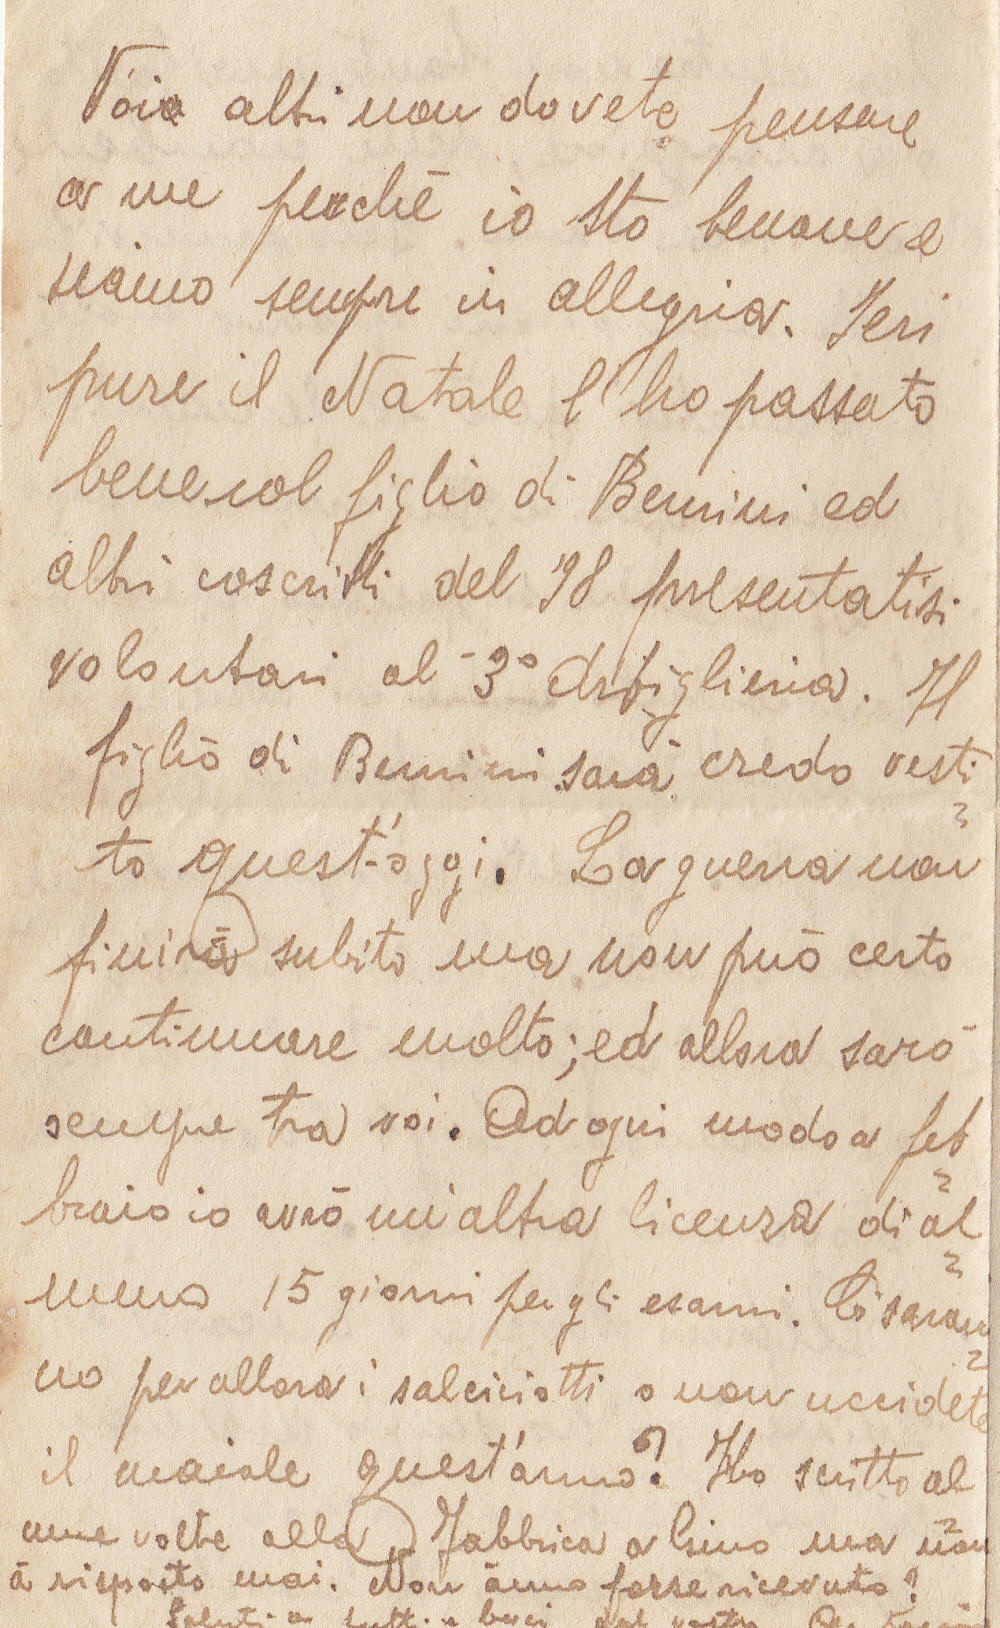 Voi altri non dovete pensare
a me perchè io sto benone e
siamo sempre in allegria. Ieri
pure il Natale l'ho passato
bene col figlio di Bernini ed
altri coscritti del '98 presentatisi
volontari al 3° Artiglieria. Il
figlio di Bernini sarà credo vesti
to quest'oggi. La guerra non
finirà subito ma non può certo
continuare molto; ed allora sarò
sempre tra voi. Ad ogni modo a feb
braio io avrò un'altra licenza di al
meno 15 giorni per gli esami. Ci saran
no per allora i salciciotti o non uccidete
il maiale quest'anno? Ho scritto al
cune volte alla Fabbrica a Gino ma non
à risposto mai. Non ànno forse ricevuto?
Saluti a tutti e baci dal vostro